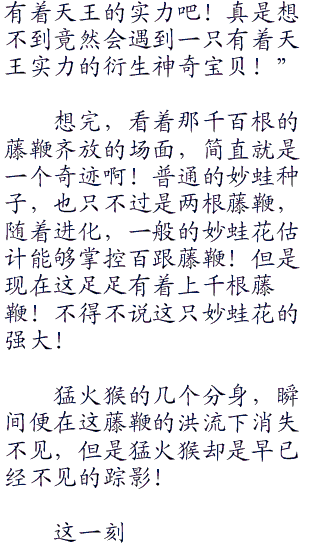 有着天王的实力吧！真是想
不到竟然会遇到一只有着天
王实力的衍生神奇宝贝！”
想完，看着那千百根的
藤鞭齐放的场面，简直就是
一个奇迹啊！普通的妙蛙种
子，也只不过是两根藤鞭，
随着进化，一般的妙蛙花估
计能够掌控百跟藤鞭！但是
现在这足足有着上千根藤
鞭！不得不说这只妙蛙花的
强大！
猛火猴的几个分身，瞬
间便在这藤鞭的洪流下消失
不见，但是猛火猴却是早已
经不见的踪影！
这一刻